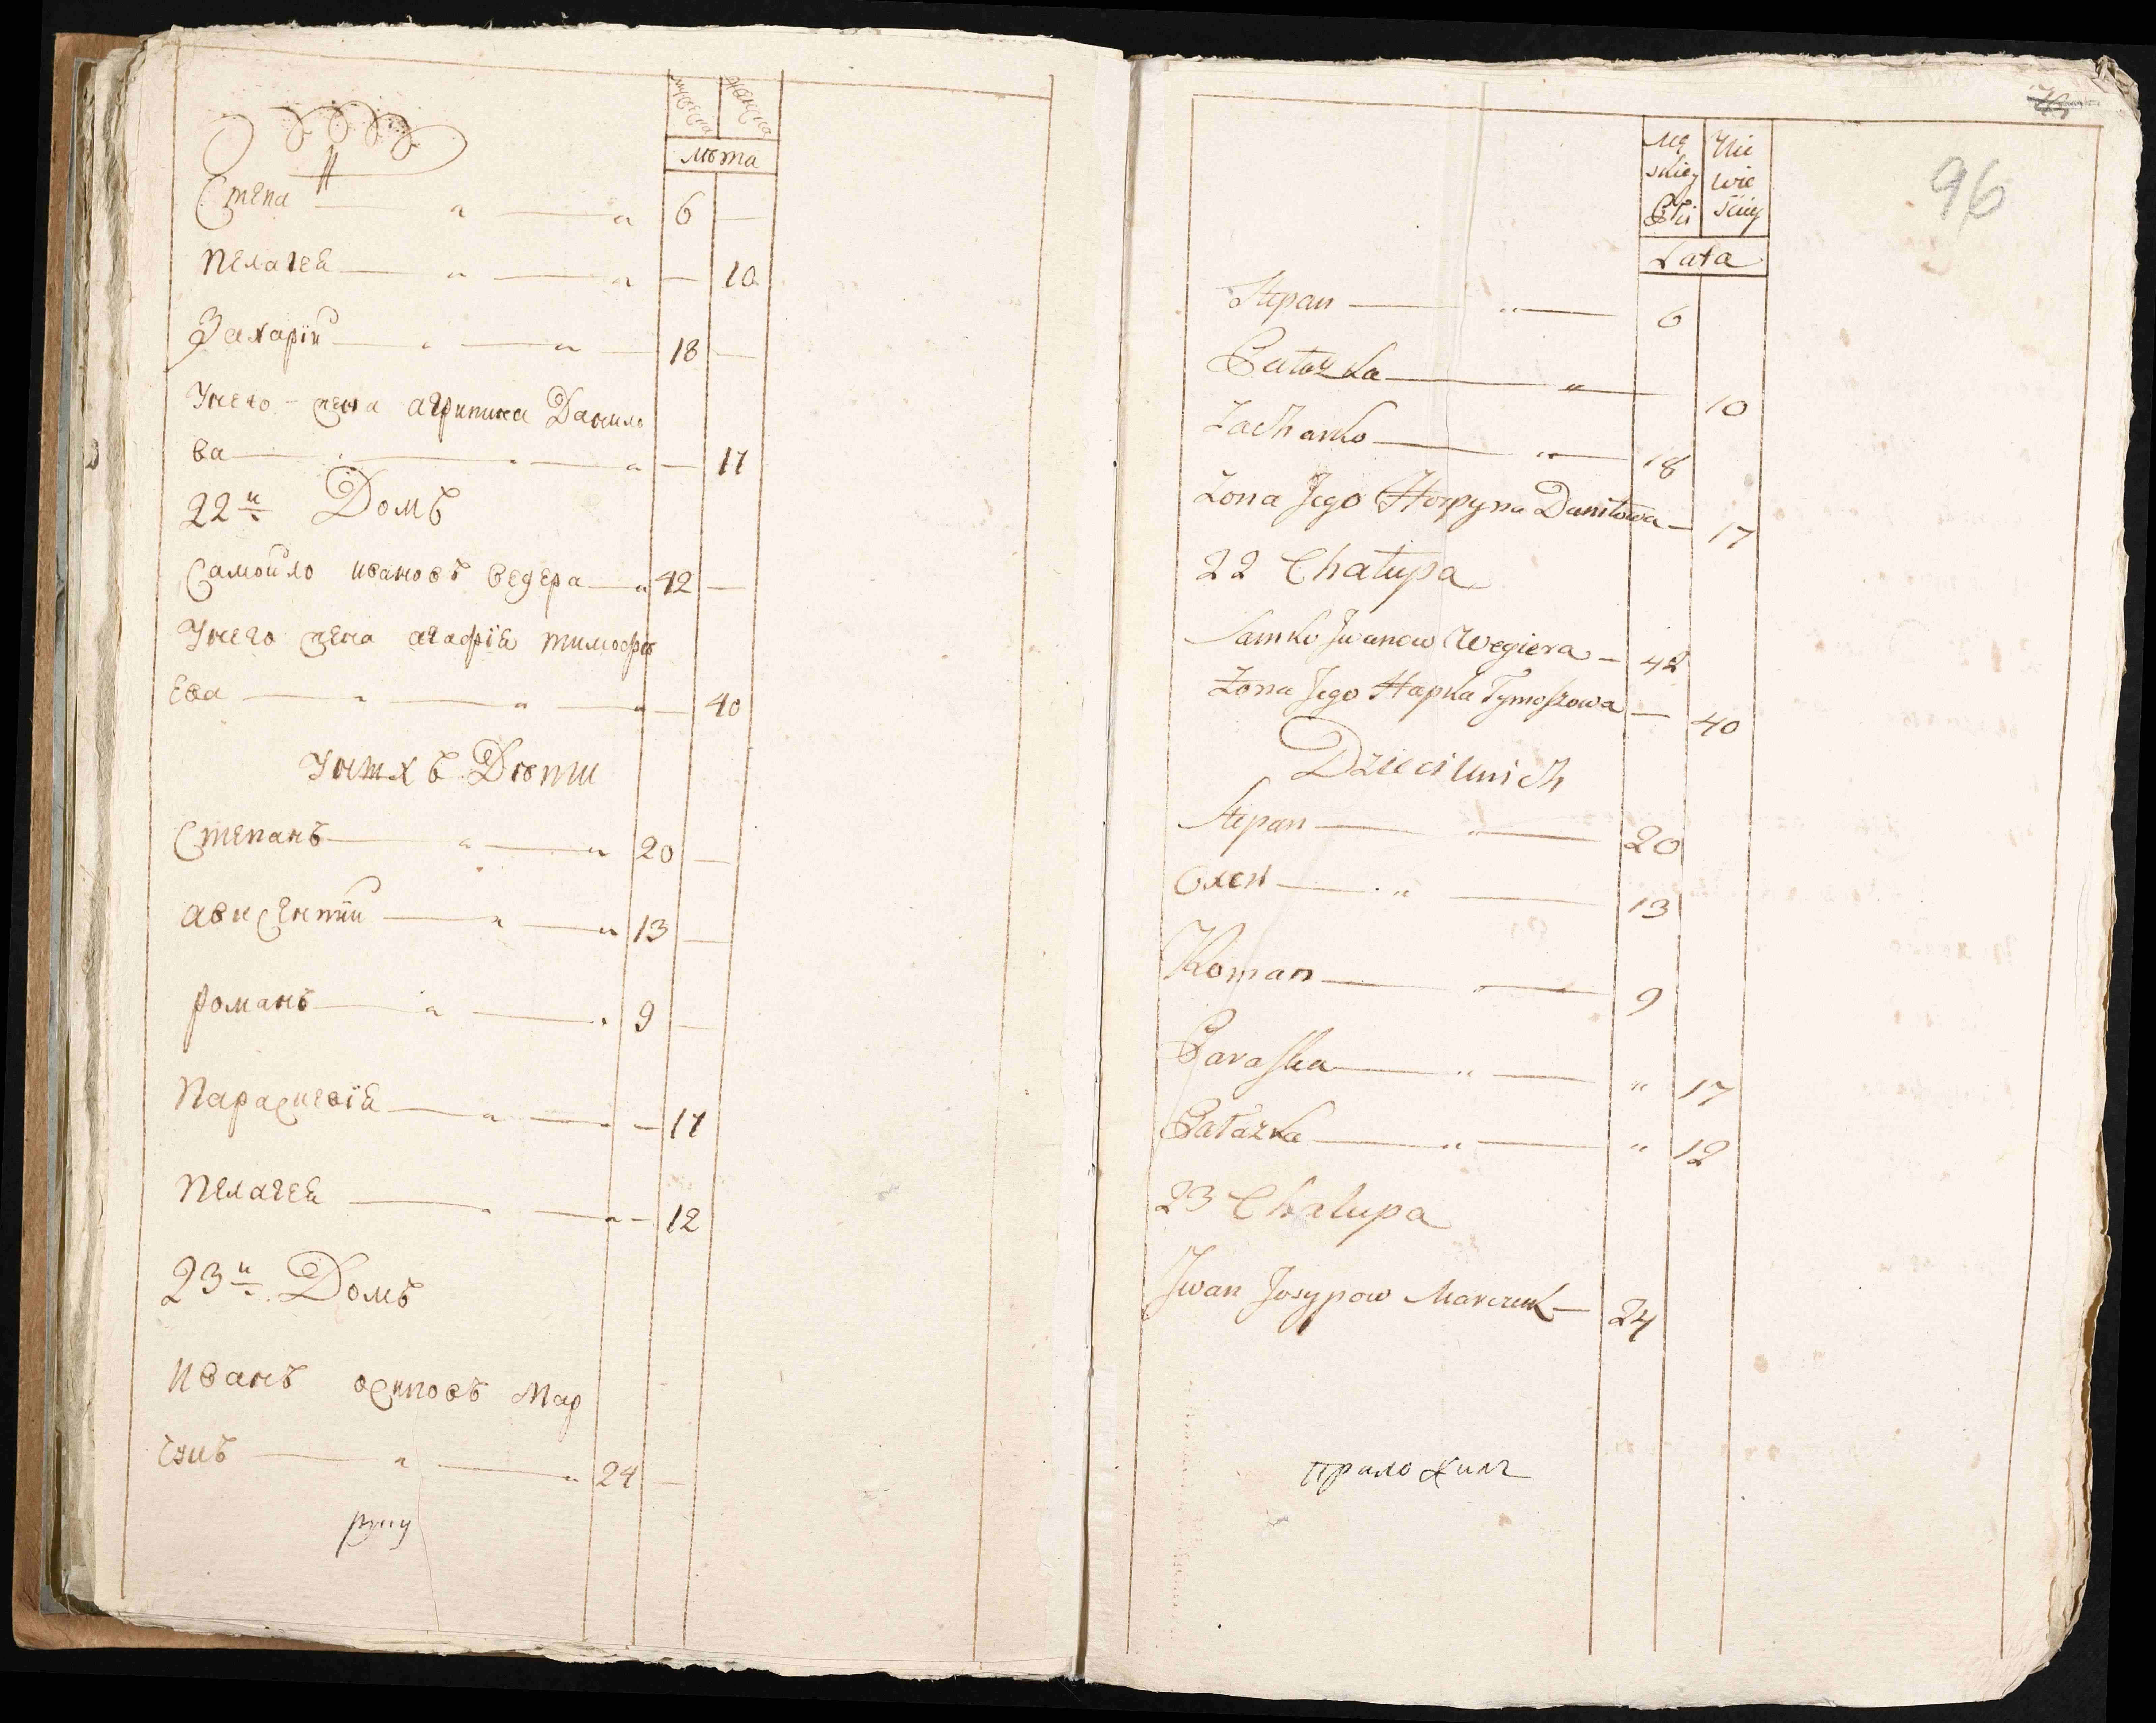 мужеска женска
лѣта
Степа 6 —
Пелагея — 10
Захарiи 18 —
Унего жена агрипина Данило
ва — 17
22й Домъ
Самойло ивановъ Вегера 42 —
Унего жена агафiя тимофѣ
ева — 40
Унихъ Дѣти
Степанъ 20 —
авксентiи 13 —
романъ 9 —
Параскевiя — 17
Пелагея — 12
23й Домъ
Иванъ осиповъ Мар
чукъ 24 —
руку
96
Mę skiey Płci
Nie wie sciey
Lata
Stepan — " — 6
Pałazka — " — 10
Zacharko — " — 18
Zona Jego Horpyna Daniłowa — 17
22 Chałupa
Samko Jwanow Wegiera — 42
Zona Jego Hapka Tymoszowa — 40
Dzieci unich
Stepan — " — 20
Oxen — " — 13
Roman — " — 9
Paraska — " — " 17
Pałazka — " — " 12
23 Chalupa
Jwan Josypow Marczuk — 24
приложилъ